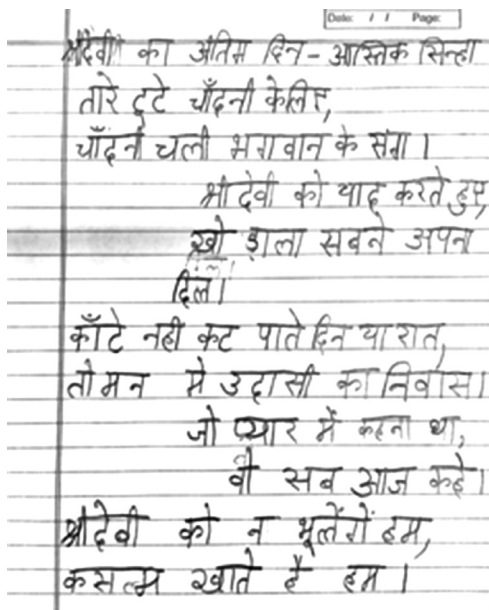 Date: / / Page:
श्रीदेवी का अंतिम दिन - आस्तिक सिन्हा
तारे टुटे चाँदनी केलिए,
चाँदनी चली भगवान के संग।
श्रीदेवी को याद करते हुए,
खो डाला सबने अपना
दिल।
काँटे नही कट पाते दिन या रात,
तो मन मे उदासी का निवास।
जो प्यार में कहना था,
वो सब आज कहे।
श्रीदेवी को न भूलेंगें हम,
कसल्म खाते है हम।